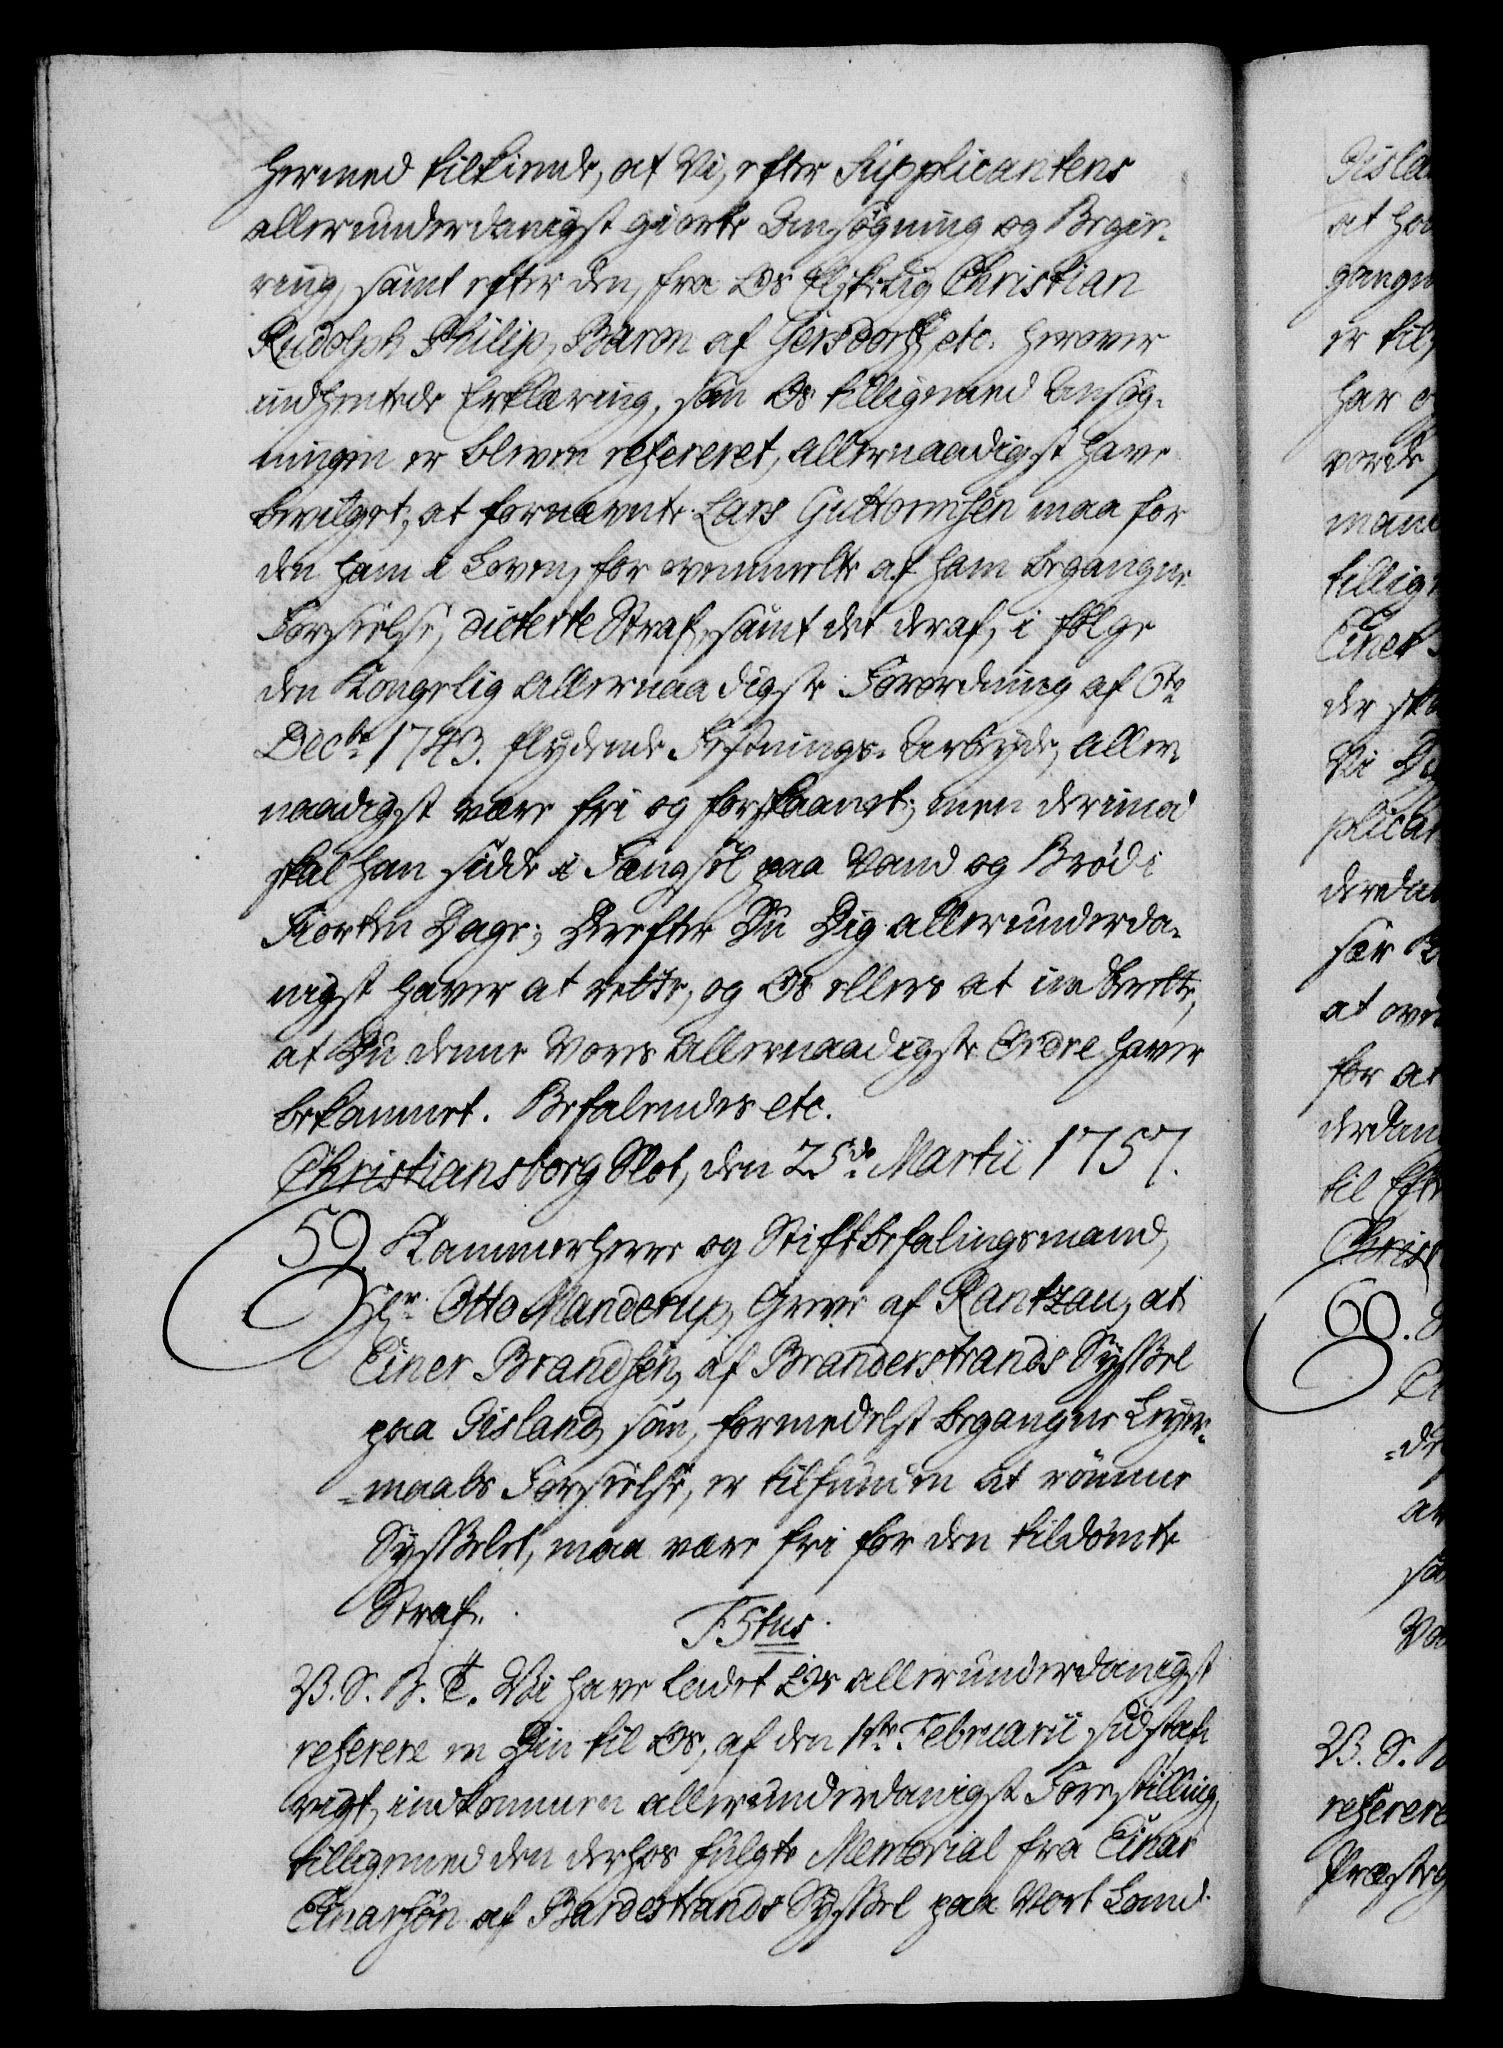 hermed tilkiende, at Vi, efter Supplicantens
allerunderdanigst giorte Ansøgning og Begie-
ring, samt efter den, fra Os Elskelig Christian
Rudolph Philip, Baron af Gersdorff etc. herover
indhentede Erklæring, som Os tilligemed Ansøg-
ningen er bleven refereret, allernaadigst have
bevilget, at fornævnte Lars Guttormsen maa for
den ham i Loven, for ovenmelte af ham begangne
Forseelse, dicterte Straf, samt det deraf, i følge
den Kongelig Allernaadigste Forordning af 6te
Decbr 1743. flydende Festnings-Arbeyde, aller-
naadigst være fri og forskaanet; men derimod
skal han sidde i Fængsel paa Vand og Brød i
Fiorten Dage; Derefter Du Dig allerunderda-
nigst haver at rette, og Os ellers at indberette,
at Du denne Vores Allernaadigste Ordre haver
bekommet. Befalendes etc.
Christiansborg Slot, den 25de Martii 1757.
59. Kammerherre og Stiftbefalingsmand,
Hr. Otto Manderup, Greve af Rantzau, at
Einer Brandsen, af Branderstrands Syssel
paa Iisland, som, formedelst begangne Leyer-
=maals Forseelse, er tilfunden at rømme
Sysselet, maa være fri for den tildømte
Straf.
F 5tus.
V. S. B. T. Vi have ladet Os allerunderdanigst
referere en Din til Os, af den 1te Februarii sidstaf-
vigt, indkommen allerunderdanigst Forestilling,
tilligemed den derhos fulgte Memorial fra Einar
Einarsøn af Bardestrands Syssel paa Vort Land